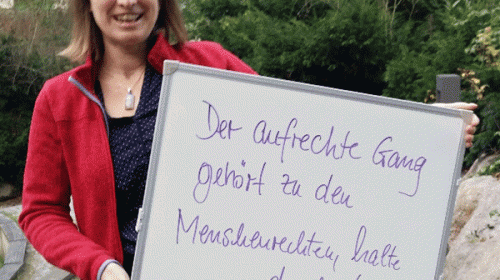 Der aufrechte Gang
gehört zu den
Menschenrechten, halte